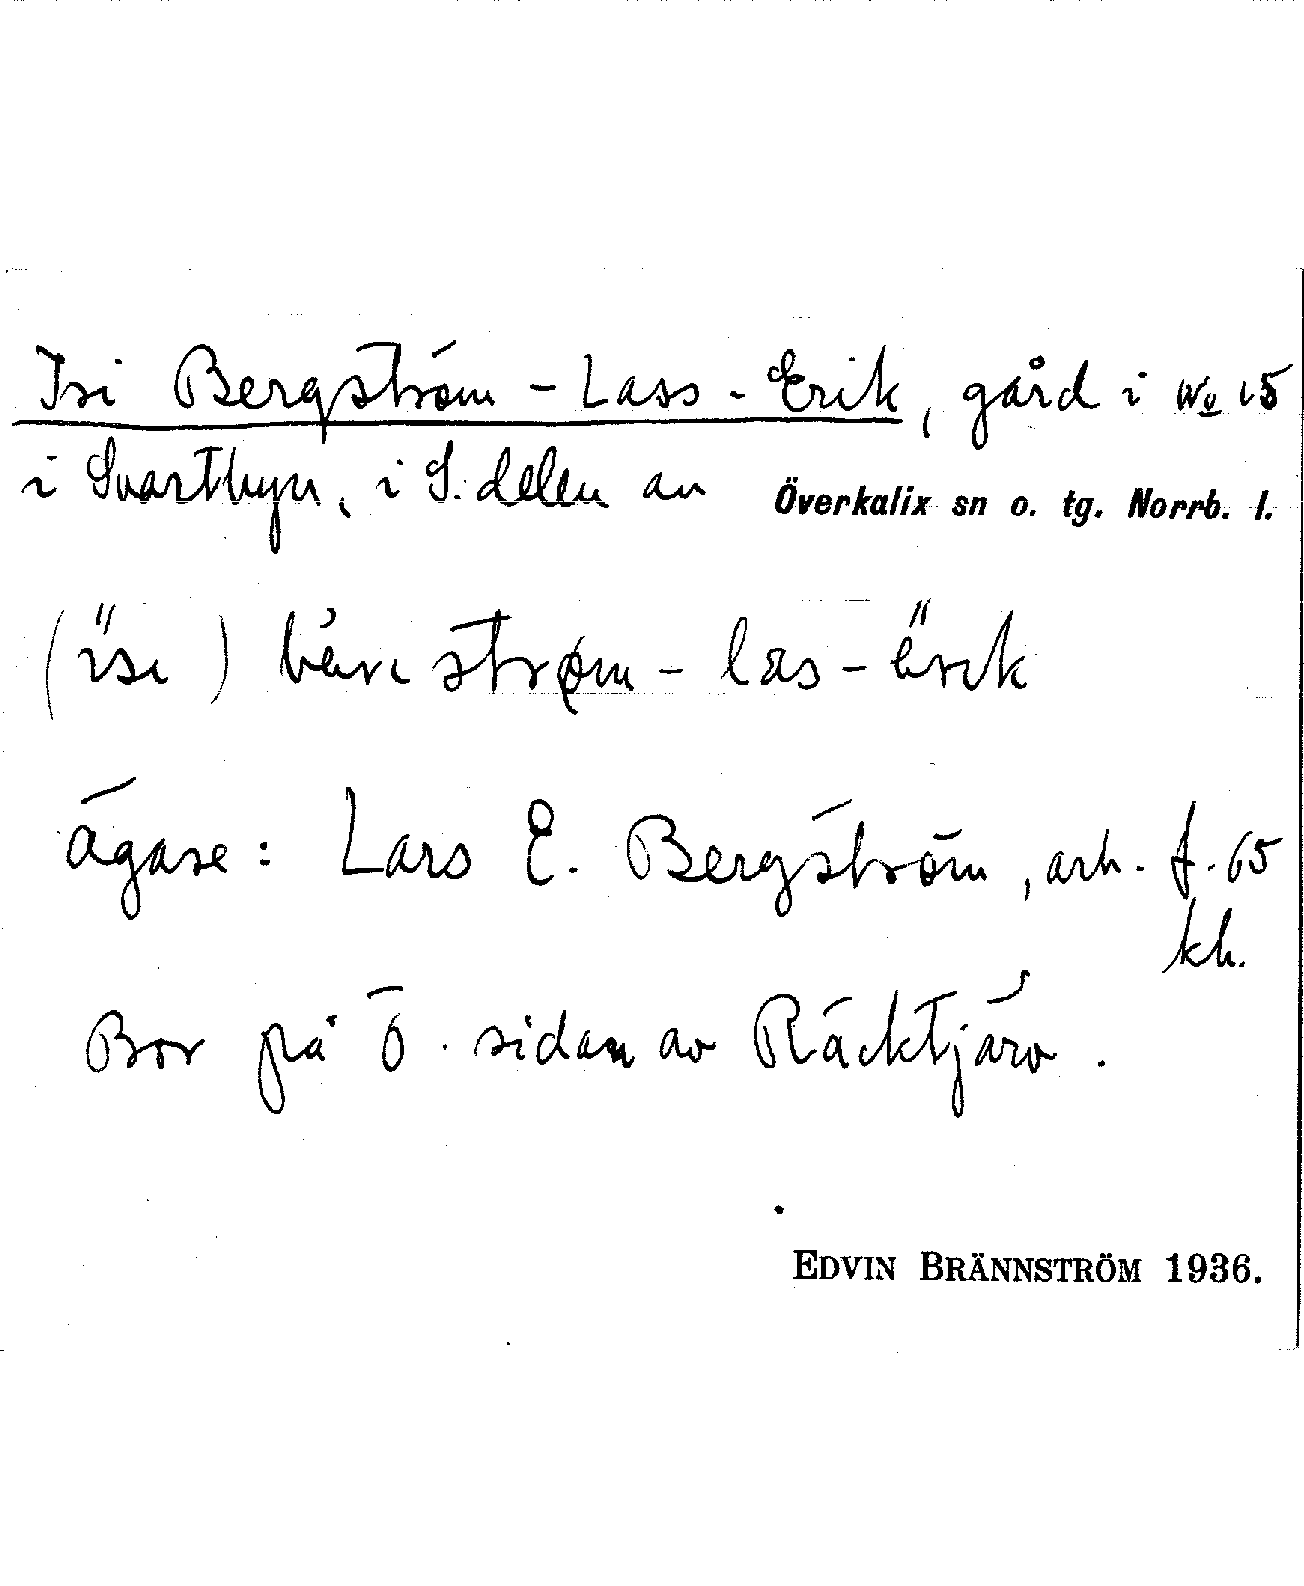 Isi Bergström-Lass-Erik, gård i No 15
i Svartbyn, i S. delen av Överkalix sn o. tg. Norrb. l.
(isi) strøm-las-
ägare: Lars E. Bergström, arb. f. 65
kh.
Bor på Ö. sidan av Räcktjärv.
EDVIN BRÄNNSTRÖM 1936.